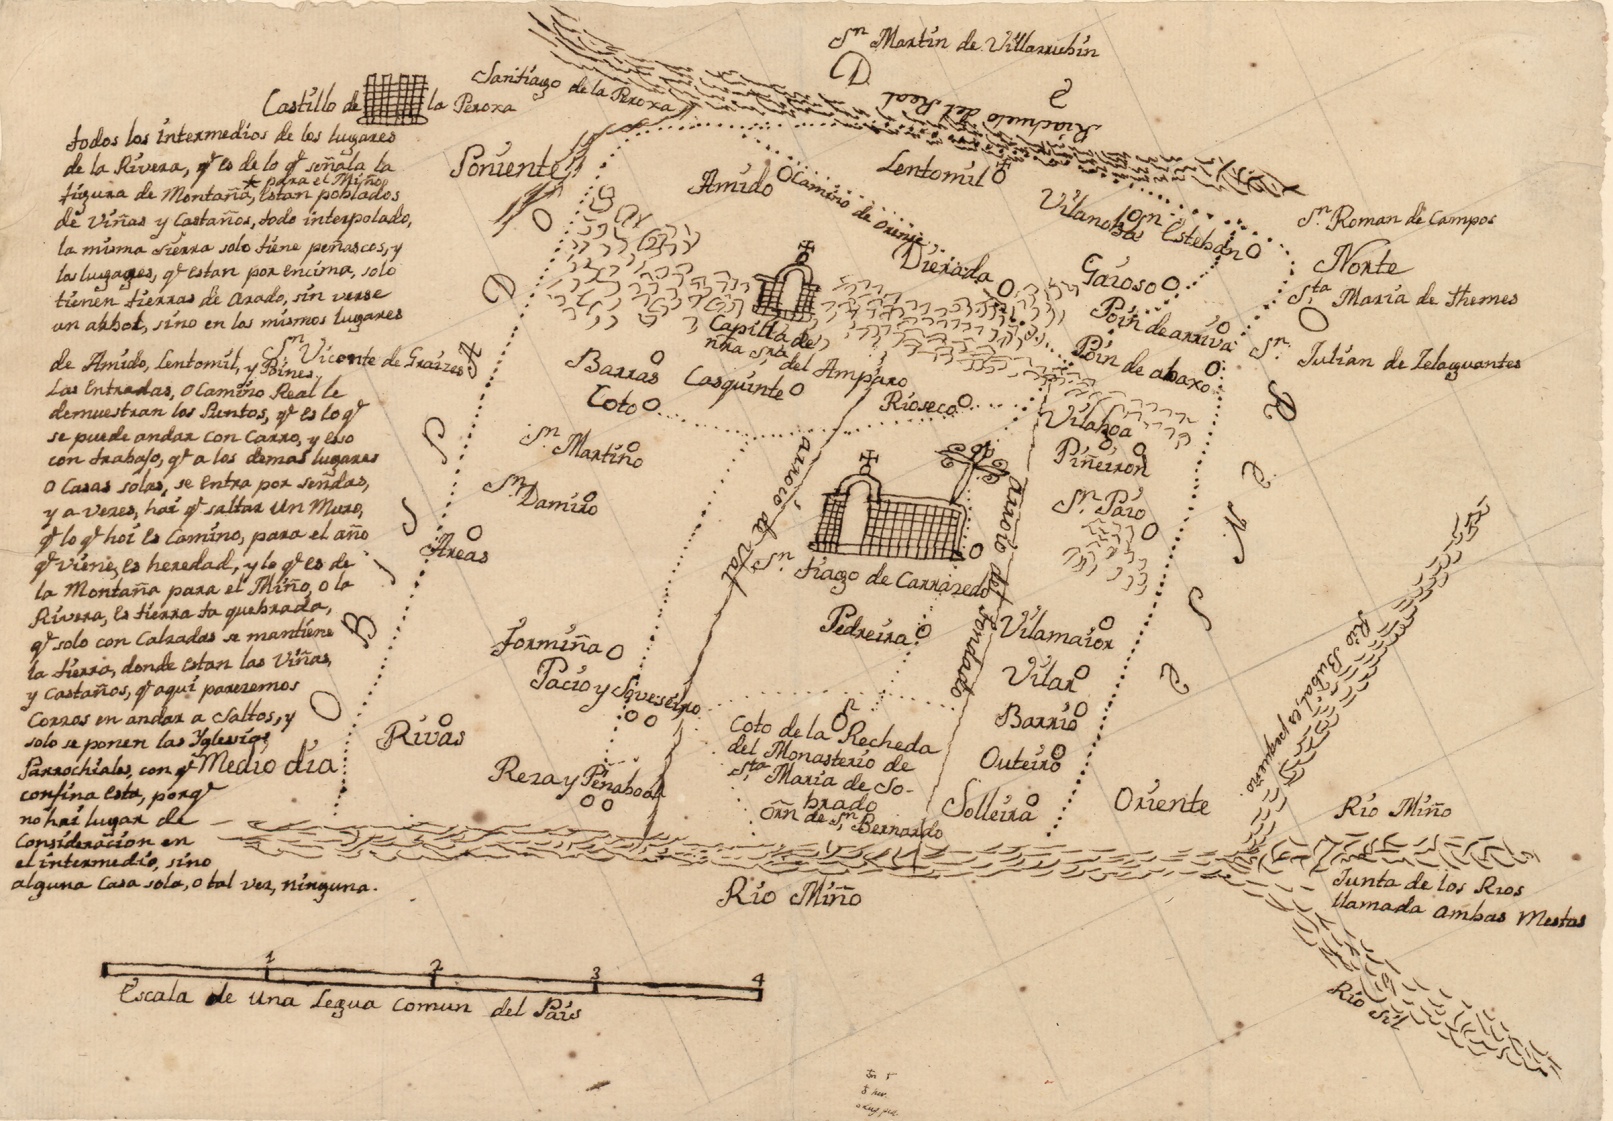 Sn Martin de Villarrubin
Santiago de la Peroxa
Castillo de la Peroxa
Riachuelo del Real
todos los intermedios de los lugares
de la Rivera, qe es de lo qe señala la
figura de Montaña, * para el Miño estan poblados
de Viñas y Castaños, todo interpolado,
la misma sierra solo tiene peñascos, y
los lugares, qe estan por encima, solo
tienen tierras de arado, sin verse
un arbol, sino en los mismos lugares
de Amido, Lentomil, y Bines.
Las Entradas, o Camino Real le
demuestran los Puntos, qe es lo qe
se puede andar con Carro, y eso
con trabajo, qe a los demas lugares
o Casas solas, se entra por sendas,
y a vezes, hai qe saltar un Muro,
qe lo qe hoi es Camino, para el año
qe viene, es heredad, y lo qe es de
la Montaña para el Miño, o la
Rivera, es tierra ta quebrada,
qe solo con Calzadas se mantiene
la tierra, donde estan las Viñas,
y Castaños, qe aqui parezemos
Corzos en andar a Saltos, y
solo se ponen las Yglesias
Parrochiales, con qe
confina esta, porqe
no hai lugar de
Consideracion en
el intermedio, sino
alguna Casa sola, o tal vez, ninguna.
Poniente
Amido
Camino de Orense
Lentomil
Vilanoba
Sn Esteban
Sn Roman de Campos
Norte
Sta Maria de Themes
Dierada
Gaioso
Poin de arriva
Poin de abaxo
Sn Julian de Zelaguantes
Sn Vicente de Graizes
Capilla de
nra Sra del Amparo
Barras
Casquinte
Coto
Rioseco
Vilahoa
Piñeiron
Sn Martiño
arroio de Val
Sn Damiro
Sn Paio
Areas
Sn Tiago de Carrazedo
arroio del fondado
OBISPADO
DE ORENSE
Pedreira
Vilamaior
Formiña
Pacio y Sveseiro
Vilar
Barrio
Rivas
Coto de la Recheda
del Monasterio de
Sta Maria de So-
brado
orn de Sn Bernardo
Outeiro
Medio dia
Reza y Penaboa
Solleira
Oriente
Rio Bubal, es pequeño.
Rio Miño
Rio Miño
Junta de los Rios
llamada ambas Mestas
Rio Sil
1 2 3 4
Escala de una Legua comun del Pais